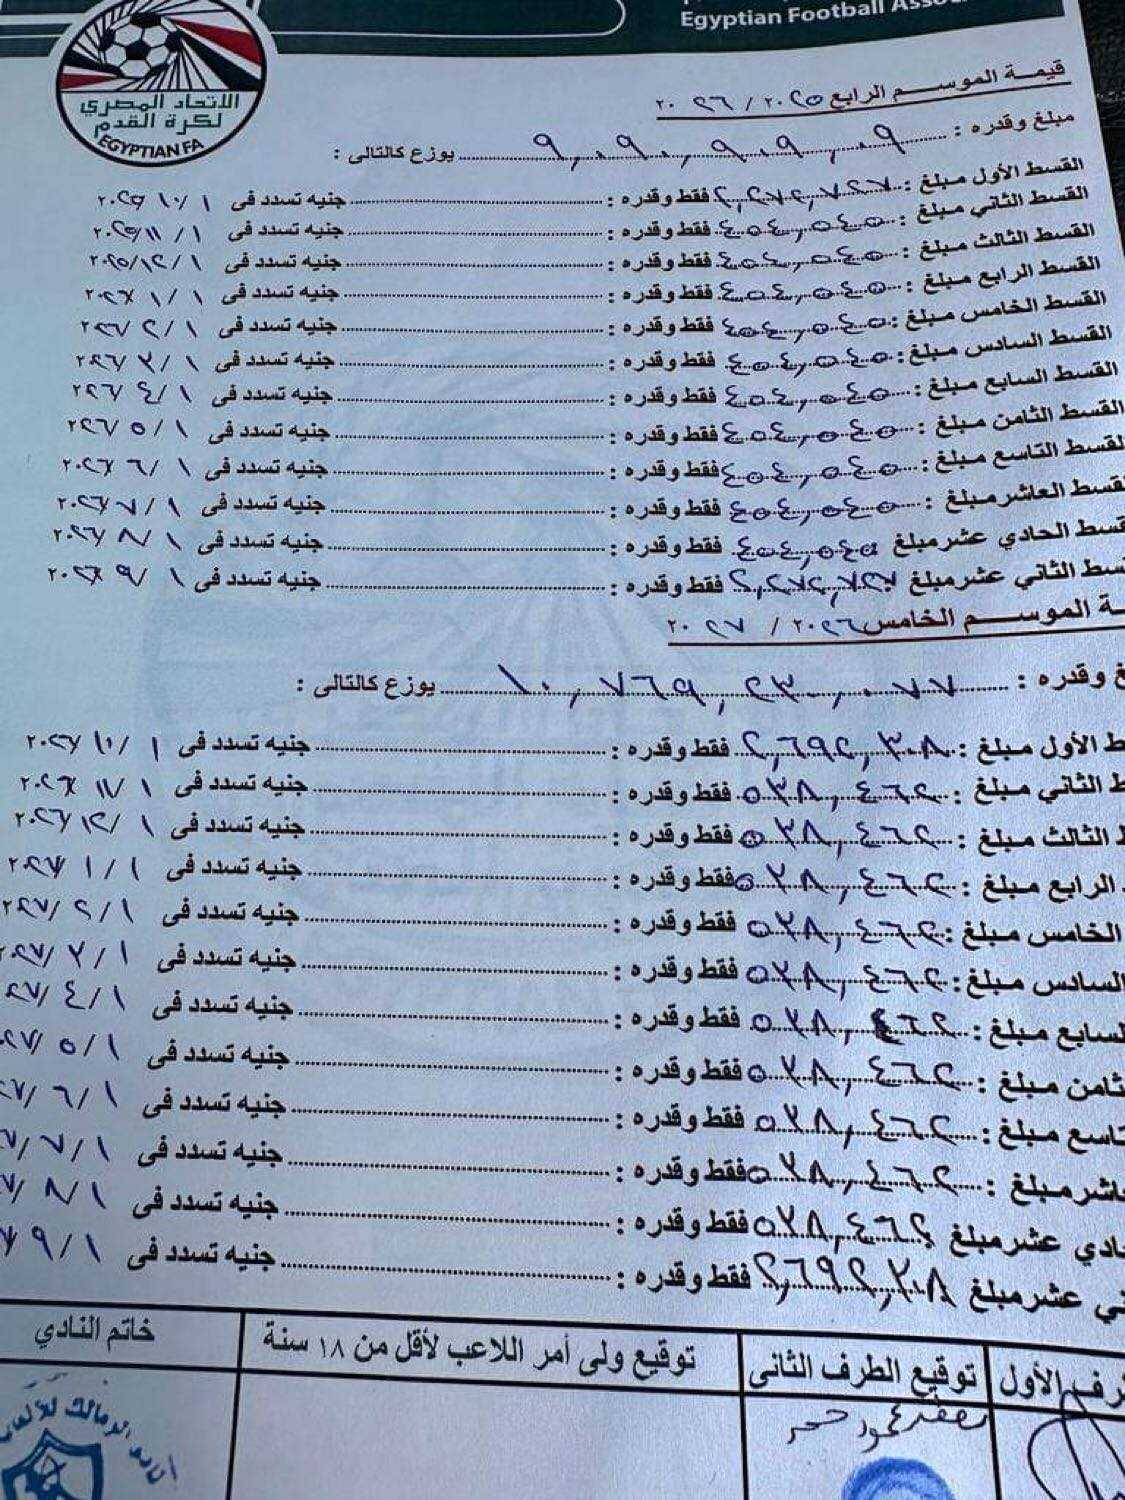 Egyptian Football Assoc
الاتحاد المصري
لكرة القدم
EGYPTIAN FA
قيمة الموسم الرابع ٢٠٢٥ / ٢٠٢٦
مبلغ وقدره : ٩,٠٩٠,٩٠٩,٠٩ يوزع كالتالى :
القسط الأول مبلغ : ٢,٢٧٢,٧٢٧ فقط وقدره : جنيه تسدد فى ١ / ١٠ / ٢٠٢٥
القسط الثاني مبلغ : ٤٥٤,٥٤٥ فقط وقدره : جنيه تسدد فى ١ / ١١ / ٢٠٢٥
القسط الثالث مبلغ : ٤٥٤,٥٤٥ فقط وقدره : جنيه تسدد فى ١ / ١٢ / ٢٠٢٥
القسط الرابع مبلغ : ٤٥٤,٥٤٥ فقط وقدره : جنيه تسدد فى ١ / ١ / ٢٠٢٦
القسط الخامس مبلغ : ٤٥٤,٥٤٥ فقط وقدره : جنيه تسدد فى ١ / ٢ / ٢٠٢٦
القسط السادس مبلغ : ٤٥٤,٥٤٥ فقط وقدره : جنيه تسدد فى ١ / ٣ / ٢٠٢٦
القسط السابع مبلغ : ٤٥٤,٥٤٥ فقط وقدره : جنيه تسدد فى ١ / ٤ / ٢٠٢٦
القسط الثامن مبلغ : ٤٥٤,٥٤٥ فقط وقدره : جنيه تسدد فى ١ / ٥ / ٢٠٢٦
القسط التاسع مبلغ : ٤٥٤,٥٤٥ فقط وقدره : جنيه تسدد فى ١ / ٦ / ٢٠٢٦
لقسط العاشر مبلغ : ٤٥٤,٥٤٥ فقط وقدره : جنيه تسدد فى ١ / ٧ / ٢٠٢٦
قسط الحادي عشر مبلغ ٤٥٤,٥٤٥ فقط وقدره : جنيه تسدد فى ١ / ٨ / ٢٠٢٦
سط الثاني عشر مبلغ ٢,٢٧٢,٧٢٧ فقط وقدره : جنيه تسدد فى ١ / ٩ / ٢٠٢٦
ـة الموسم الخامس ٢٠٢٦ / ٢٠٢٧
غ وقدره : ١٠,٧٦٩,٢٣٠,٠٧٧ يوزع كالتالى :
ط الأول مبلغ : ٢,٦٩٢,٣٠٨ فقط وقدره : جنيه تسدد فى ١ / ١٠ / ٢٠٢٦
ط الثاني مبلغ : ٥٣٨,٤٦٢ فقط وقدره : جنيه تسدد فى ١ / ١١ / ٢٠٢٦
ط الثالث مبلغ : ٥٣٨,٤٦٢ فقط وقدره : جنيه تسدد فى ١ / ١٢ / ٢٠٢٦
الرابع مبلغ : ٥٣٨,٤٦٢ فقط وقدره : جنيه تسدد فى ١ / ١ / ٢٠٢٧
الخامس مبلغ : ٥٣٨,٤٦٢ فقط وقدره : جنيه تسدد فى ١ / ٢ / ٢٠٢٧
السادس مبلغ : ٥٣٨,٤٦٢ فقط وقدره : جنيه تسدد فى ١ / ٣ / ٢٠٢٧
لسابع مبلغ : ٥٣٨,٤٦٢ فقط وقدره : جنيه تسدد فى ١ / ٤ / ٠٢٧
ثامن مبلغ : ٥٣٨,٤٦٢ فقط وقدره : جنيه تسدد فى ١ / ٥ / ٠٢٧
تاسع مبلغ : ٥٣٨,٤٦٢ فقط وقدره : جنيه تسدد فى ١ / ٦ / ٢٧
ـاشر مبلغ : ٥٣٨,٤٦٢ فقط وقدره : جنيه تسدد فى ١ / ٧ / ٢٧
ـادي عشر مبلغ ٥٣٨,٤٦٢ فقط وقدره : جنيه تسدد فى ١ / ٨ / ٧
ني عشر مبلغ ٢,٦٩٢,٣٠٨ فقط وقدره : جنيه تسدد فى ١ / ٩ / ٧
ـرف الأول توقيع الطرف الثانى توقيع ولى أمر اللاعب لأقل من ١٨ سنة خاتم النادي
محمود
نادي الزمالك للألعاب